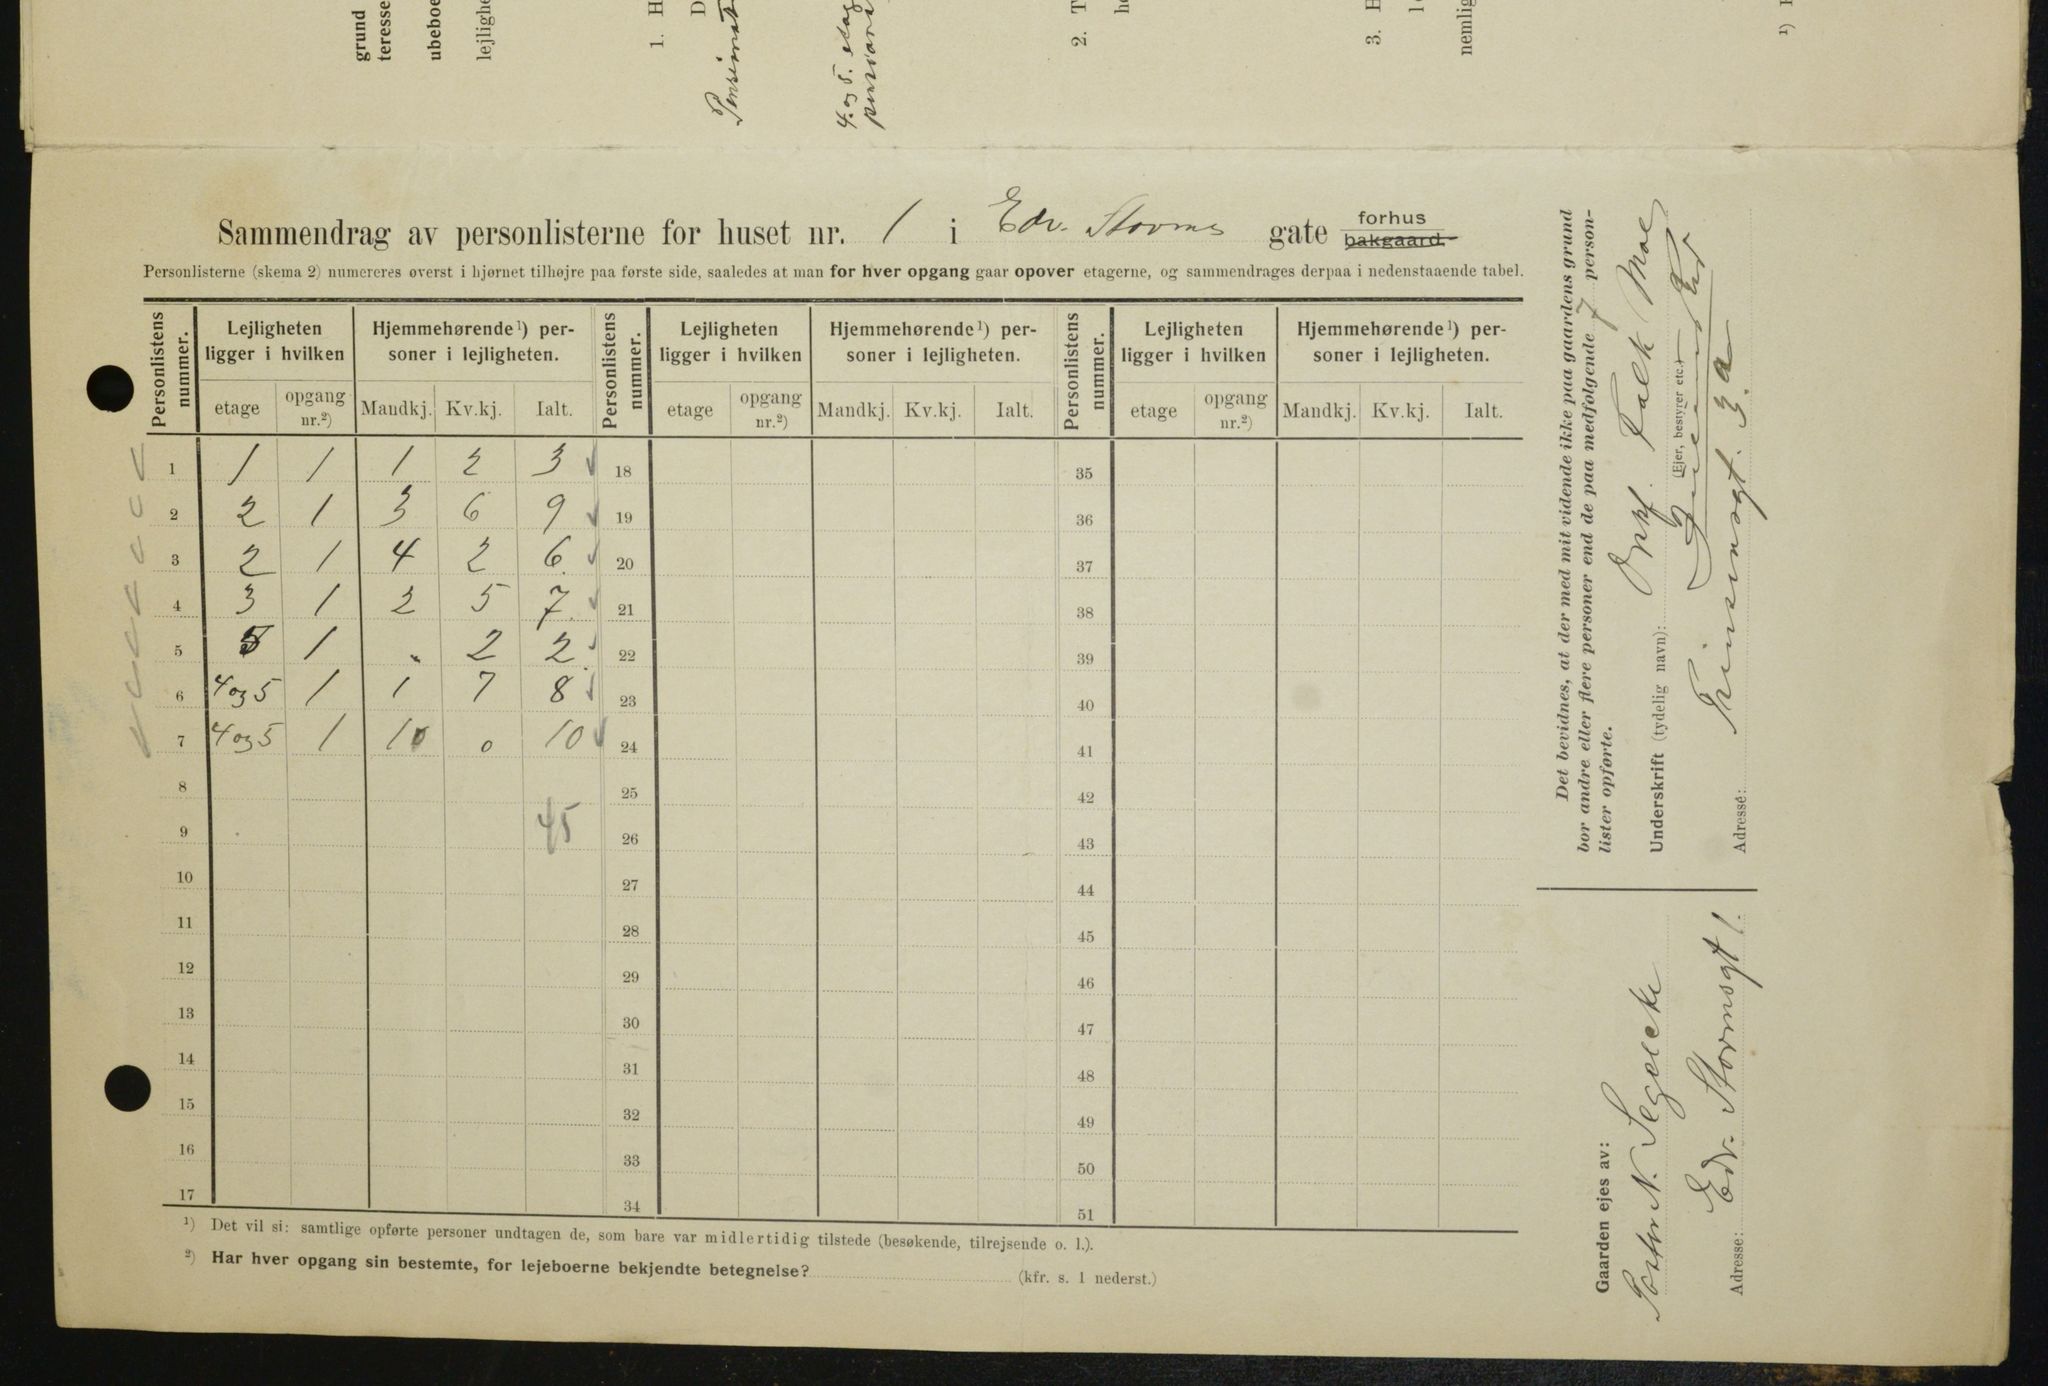 grund
teresse
ubeboe
lejlighe
1. H
D
4. og 5. etag
2. T
he
3. H
nemlig
¹) H
Sammendrag av personlisterne for huset nr. 1 i Edv. Storms gate forhus
bakgaard.
Personlisterne (skema 2) numereres øverst i hjørnet tilhøjre paa første side, saaledes at man for hver opgang gaar opover etagerne, og sammendrages derpaa i nedenstaaende tabel.
Personlistens nummer. Lejligheten ligger i hvilken Hjemmehørende¹) personer i lejligheten. Personlistens nummer. Lejligheten ligger i hvilken Hjemmehørende¹) personer i lejligheten. Personlistens nummer. Lejligheten ligger i hvilken Hjemmehørende¹) personer i lejligheten.
etage opgang nr.²) Mandkj. Kv.kj. Ialt. etage opgang nr.²) Mandkj. Kv.kj. Ialt. etage opgang nr.²) Mandkj. Kv.kj. Ialt.
1 1 1 1 2 3 18 35
2 2 1 3 6 9 19 36
3 2 1 4 2 6 20 37
4 3 1 2 5 7 21 38
5 5 1 . 2 2 22 39
6 4 og 5 1 1 7 8 23 40
7 4 og 5 1 10 0 10 24 41
8 25 42
9 45 26 43
10 27 44
11 28 45
12 29 46
13 30 47
14 31 48
15 32 49
16 33 50
17 34 51
¹) Det vil si: samtlige opførte personer undtagen de, som bare var midlertidig tilstede (besøkende, tilrejsende o. l.).
²) Har hver opgang sin bestemte, for lejeboerne bekjendte betegnelse? (kfr. s. 1 nederst.)
Det bevidnes, at der med mit vidende ikke paa gaardens grund
bor andre eller flere personer end de paa medfølgende 7 person-
lister opførte.
Underskrift (tydelig navn): Falk Moe
(Ejer, bestyrer etc.)
Adresse: Prinsensgt. 3a
Gaarden ejes av:
N. Segelcke
Adresse: Edv. Stormsgt 1.